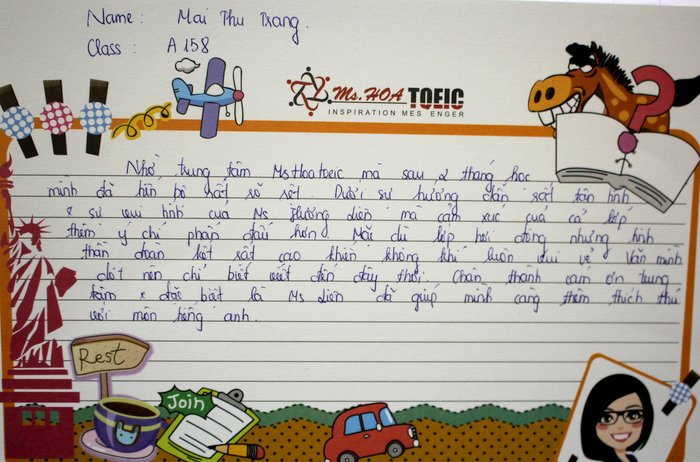 Name : Mai Thu Trang.
Class : A 158
Ms.HOA TOEIC
INSPIRATION MES ENGER
Nhờ trung tâm Ms Hoa toeic mà sau 2 tháng học
mình đã tiến bộ rất rõ rệt. Dưới sự hướng dẫn rất tận tình
& sự vui tính của Ms Hương Liên mà cảm xúc của cả lớp
thêm ý chí phấn đấu hơn. Mặc dù lớp hơi đông nhưng tinh
thần đoàn kết rất cao khiến không khí luôn vui vẻ. Văn mình
dốt nên chỉ biết viết đến đây thôi. Chân thành cảm ơn trung
tâm & đặc biệt là Ms Liên đã giúp mình càng thêm thích thú
với môn tiếng anh.
Rest
Join